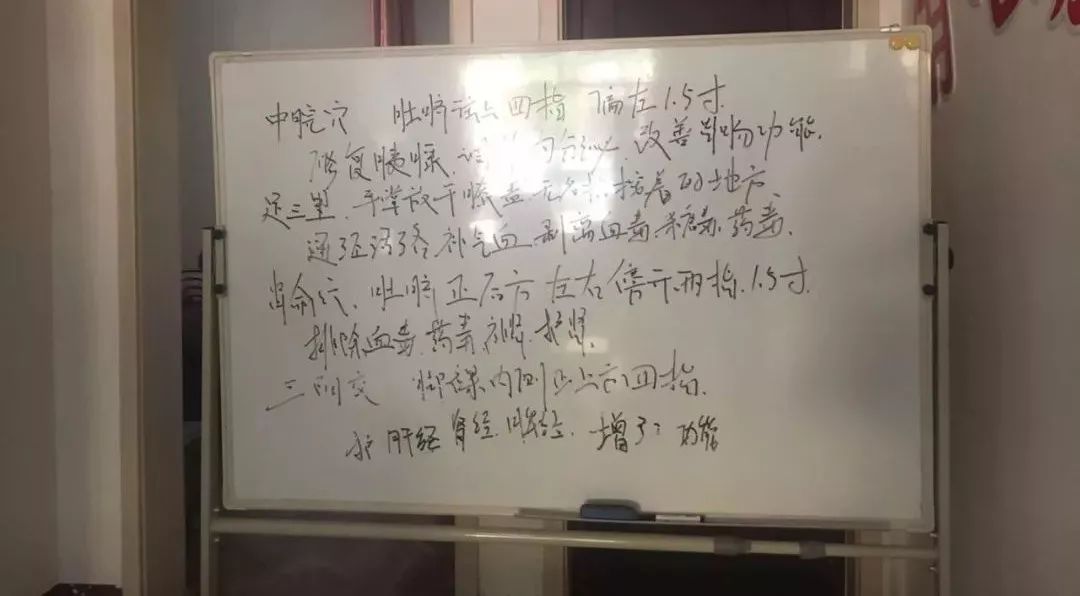 中脘穴 肚脐往上四指 偏左1.5寸
修复胰腺、调节内分泌、改善胃肠功能.
足三里、平掌放于膝盖.无名指挨着的地方、
通经活络.补气血.剥离血毒.糖毒.药毒.
肾俞穴、肚脐正后方 左右傍开两指.1.5寸
排除血毒.药毒.补肾.护肾.
三阴交 脚踝内侧正上方四指.
护肝经 肾经.脾经. 增 功能